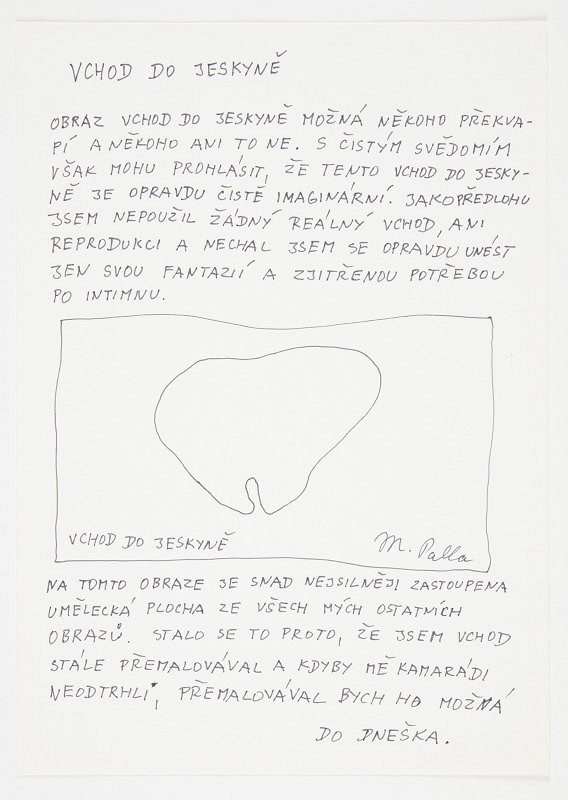 VCHOD DO JESKYNĚ
OBRAZ VCHOD DO JESKYNĚ MOŽNÁ NĚKOHO PŘEKVA-
PÍ A NĚKOHO ANI TO NE. S ČISTÝM SVĚDOMÍM
VŠAK MOHU PROHLÁSIT, ŽE TENTO VCHOD DO JESKY-
NĚ JE OPRAVDU ČISTĚ IMAGINÁRNÍ. JAKO PŘEDLOHU
JSEM NEPOUŽIL ŽÁDNÝ REÁLNÝ VCHOD, ANI
REPRODUKCI A NECHAL JSEM SE OPRAVDU UNÉST
JEN SVOU FANTAZIÍ A ZJITŘENOU POTŘEBOU
PO INTIMNU.
VCHOD DO JESKYNĚ
M. Palla
NA TOMTO OBRAZE JE SNAD NEJSILNĚJI ZASTOUPENA
UMĚLECKÁ PLOCHA ZE VŠECH MÝCH OSTATNÍCH
OBRAZŮ. STALO SE TO PROTO, ŽE JSEM VCHOD
STÁLE PŘEMALOVÁVAL A KDYBY MĚ KAMARÁDI
NEODTRHLI, PŘEMALOVÁVAL BYCH HO MOŽNÁ
DO DNEŠKA.